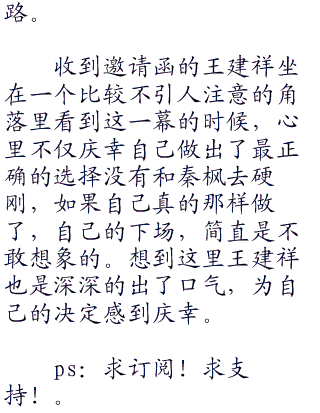 路。
收到邀请函的王建祥坐
在一个比较不引人注意的角
落里看到这一幕的时候，心
里不仅庆幸自己做出了最正
确的选择没有和秦枫去硬
刚，如果自己真的那样做
了，自己的下场，简直是不
敢想象的。想到这里王建祥
也是深深的出了口气，为自
己的决定感到庆幸。
ps：求订阅！求支
持！。